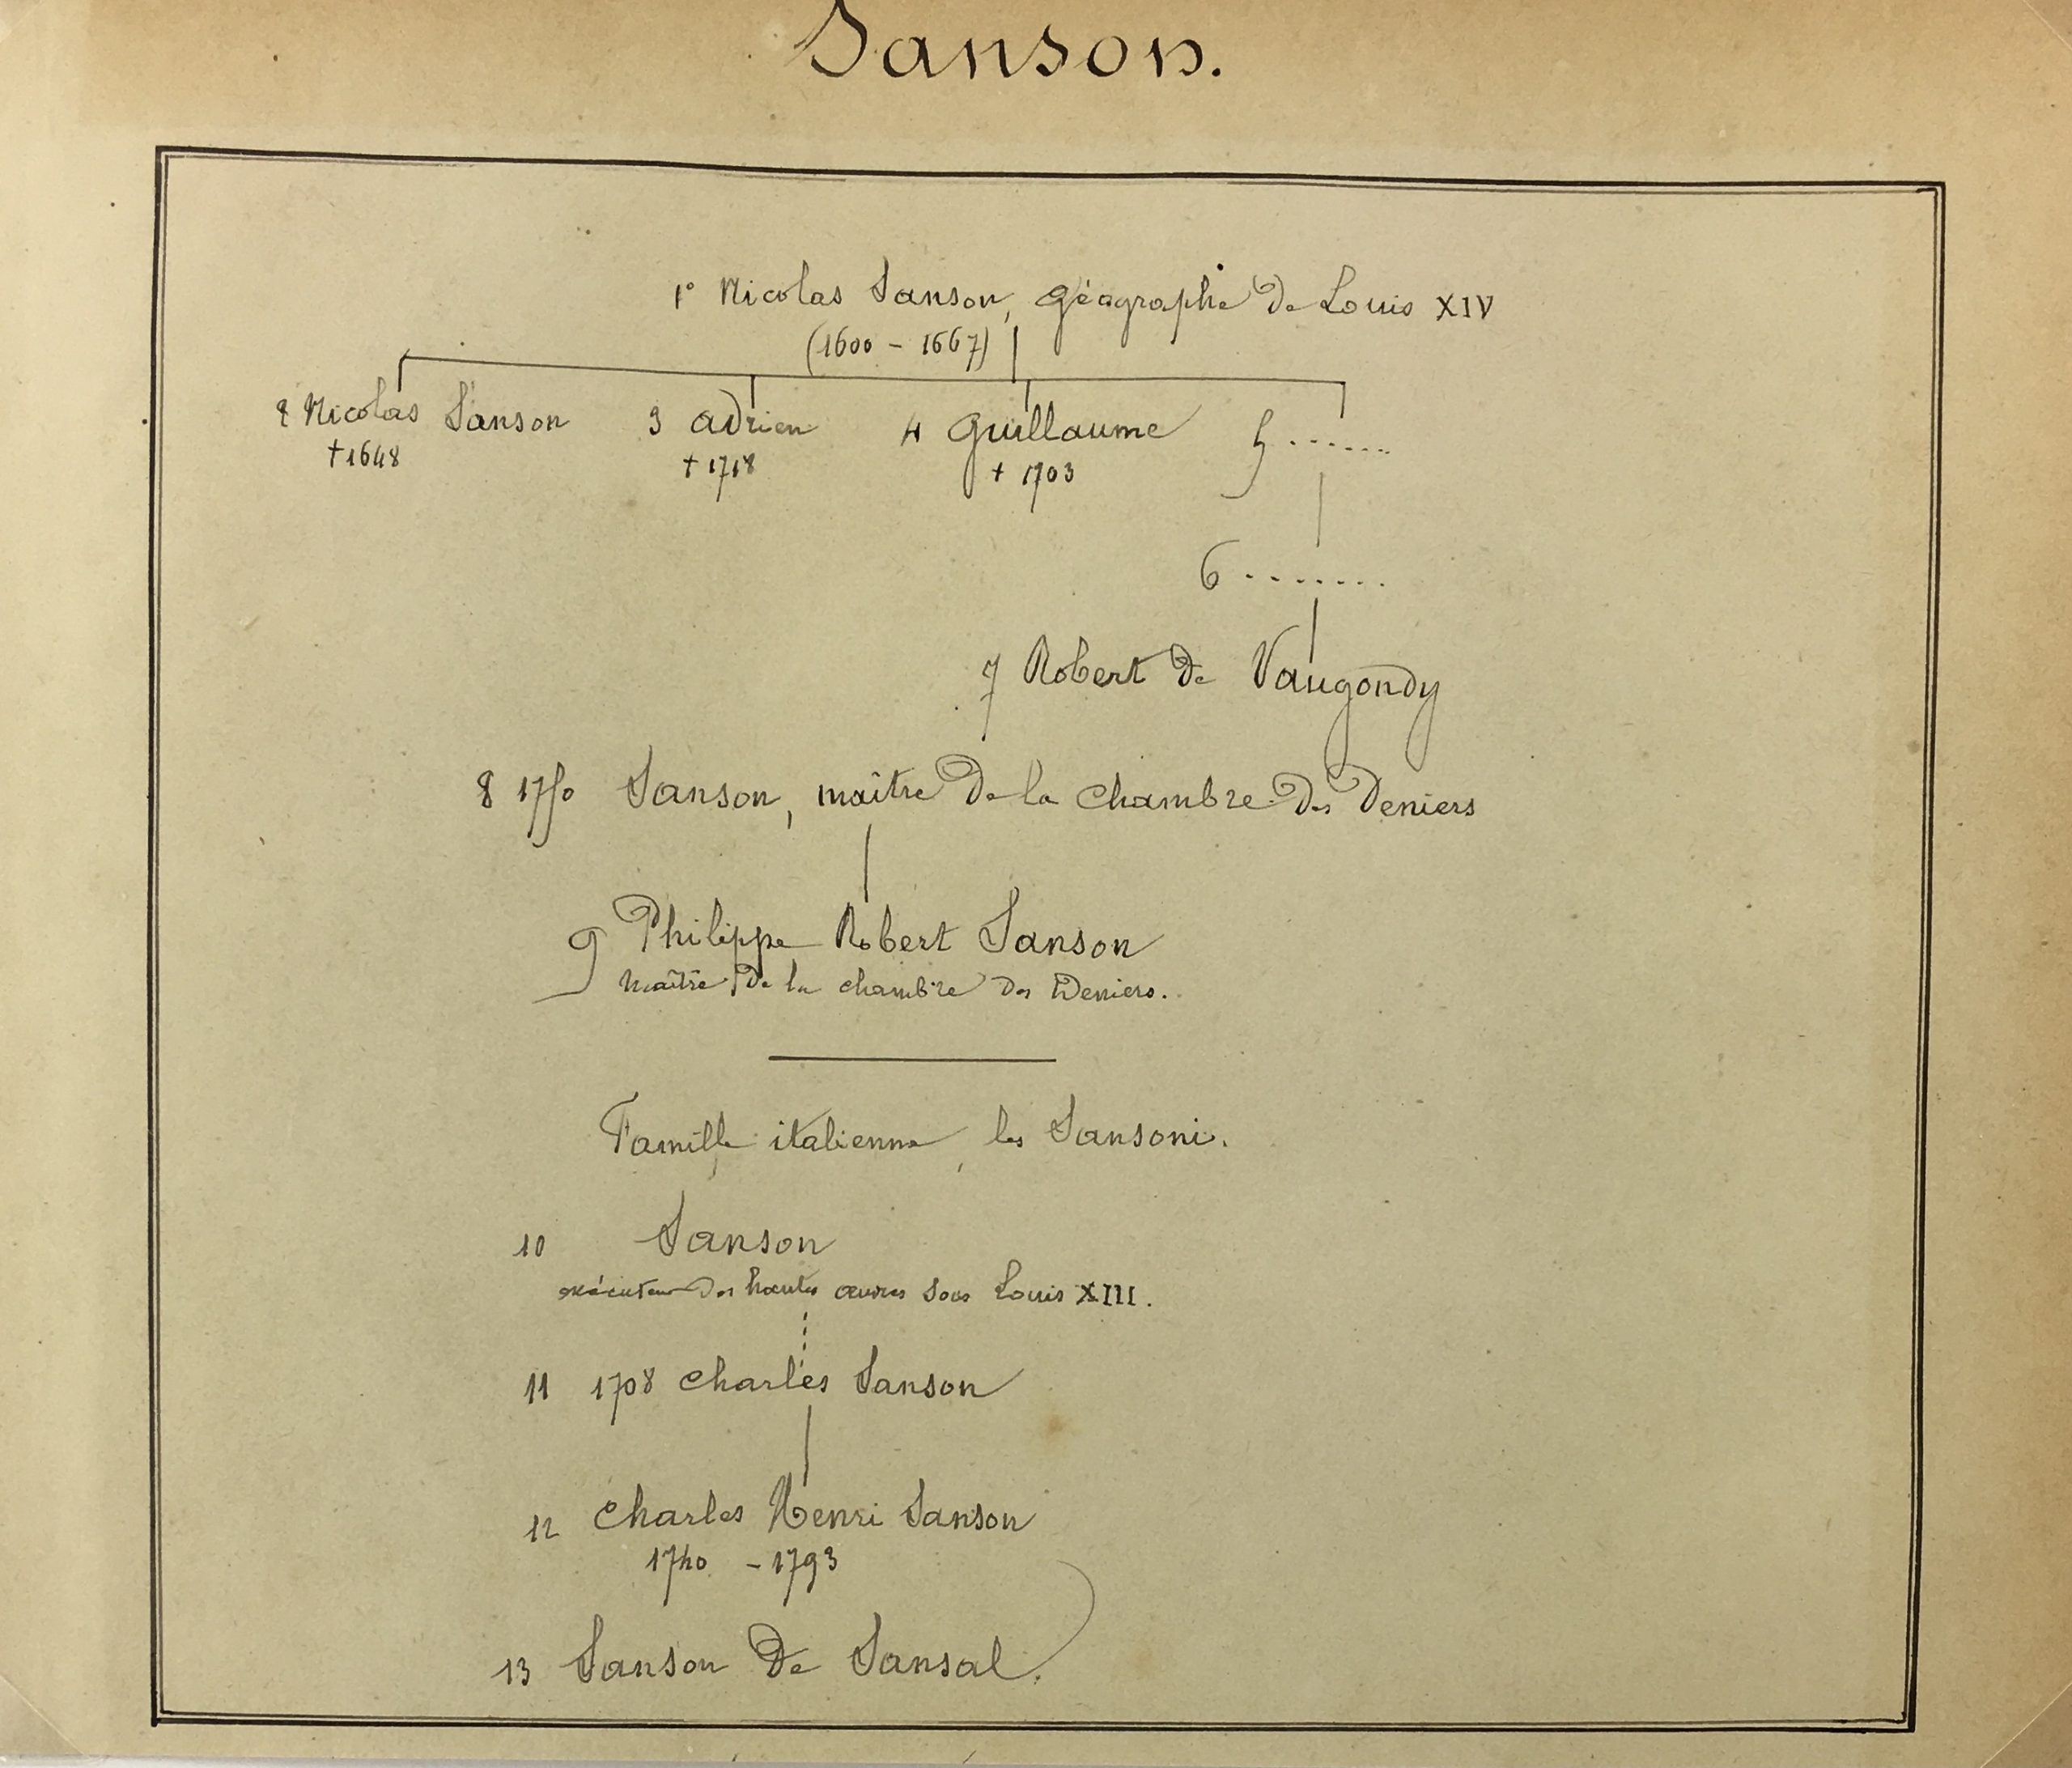 Sanson.
1° Nicolas Sanson, géographe de Louis XIV
(1600 - 1667)
2 Nicolas Sanson 3 Adrien 4 Guillaume 5 .......
†1648 † 1718 † 1703
6 ........
7 Robert de Vaugondy
8 1750 Sanson, maître de la chambre des Deniers
9 Philippe Robert Sanson
maître de la chambre des Deniers.
Famille italienne, les Sansoni.
10 Sanson
exécuteur des hautes œuvres sous Louis XIII.
11 1708 Charles Sanson
12 Charles Henri Sanson
1740 - 1793
13 Sanson de Sansal.